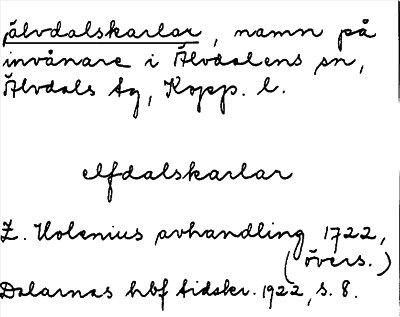 älvdalskarlar, namn på
invånare i Älvdalens sn,
Älvdals tg, Kopp. l.
elfdalskarlar
Z. Holenius avhandling 1722,
(övers.)
Dalarnas hbf tidskr. 1922, s. 8.